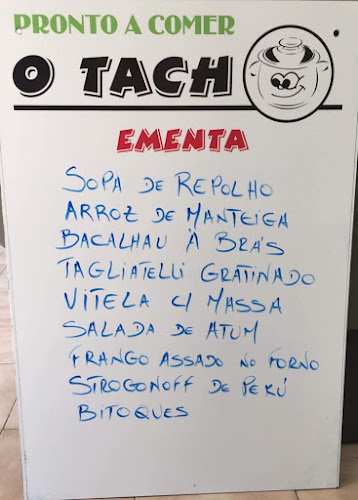 PRONTO A COMER
O TACH
EMENTA
SOPA DE REPOLHO
ARROZ DE MANTEIGA
BACALHAU À BRÁS
TAGLIATELLI GRATINADO
VITELA C/ MASSA
SALADA DE ATUM
FRANGO ASSADO NO FORNO
STROGONOFF DE PERÚ
BITOQUES